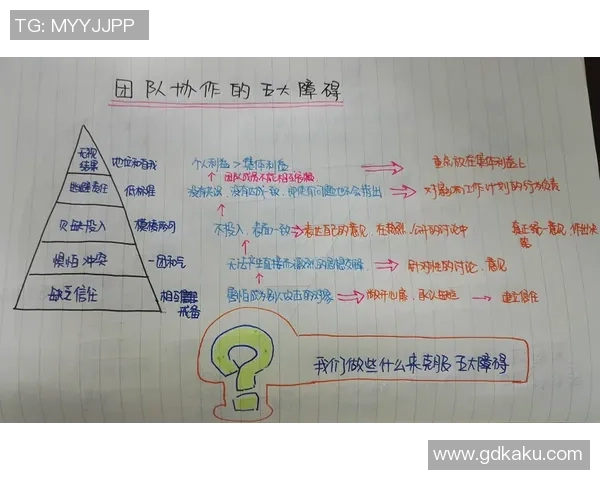 TG: MYYJJPP
团队协作的五大障碍
无视
结果
地位和自我
个人利益 > 集体利益
重点放在集体利益上
逃避责任
低标准
没有共识,没有达成一致,即使有问题也不会指出
欠缺投入
模棱两可
不投入,表面一致
表达自己的意见,在 公开的讨论中
真正统一意见,作出决策
惧怕冲突
一团和气
无法产生直接而激烈的思想交锋
针对性的讨论、意见
缺乏信任
相互
戒备
害怕成为别人攻击的对象
敞开心扉,承认
建立信任
我们做些什么来克服五大障碍
www.gdkaku.com